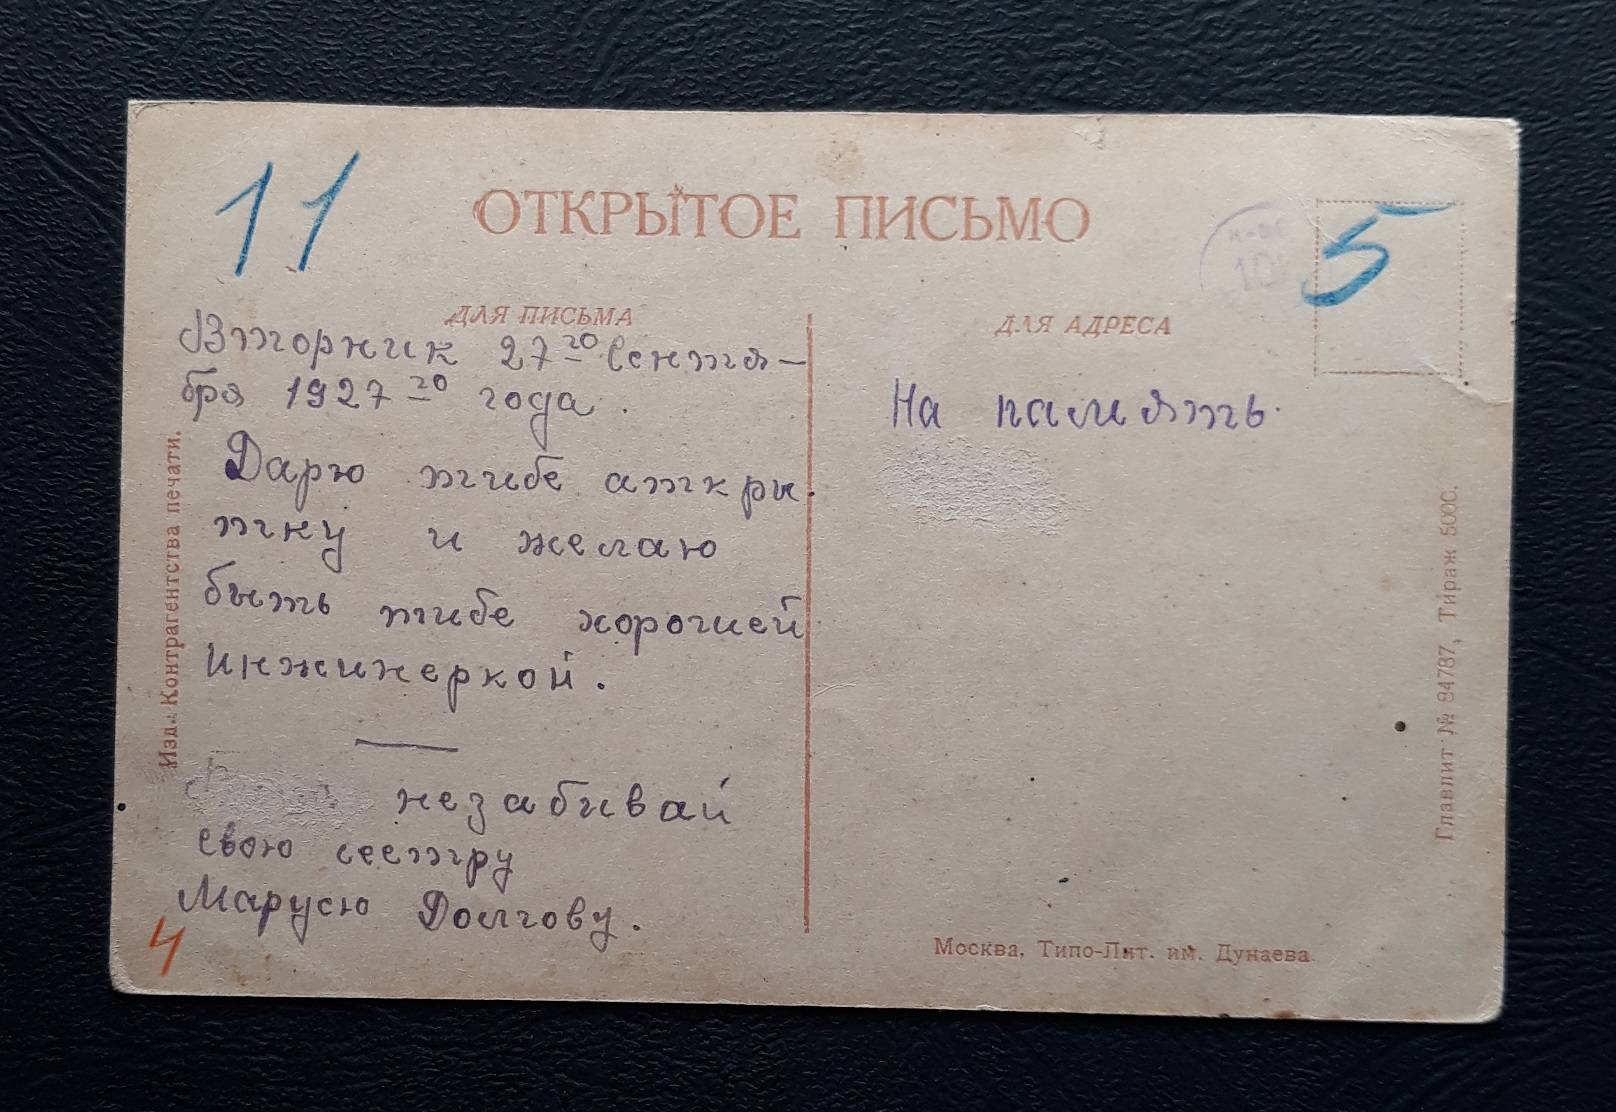 11
ОТКРЫТОЕ ПИСЬМО
5
ДЛЯ ПИСЬМА
Вторник 27го Сентя-
бря 1927го года.
Дарю тибе аткры
тку и желаю
быть тибе хорошей
инжинеркой.
незабивай
свою сестру
Марусю Долгову.
4
Изд. Контрагентства печати.
ДЛЯ АДРЕСА
На память.
Главлит № 94787, Тираж 5000.
Москва, Типо-Лит. им. Дунаева